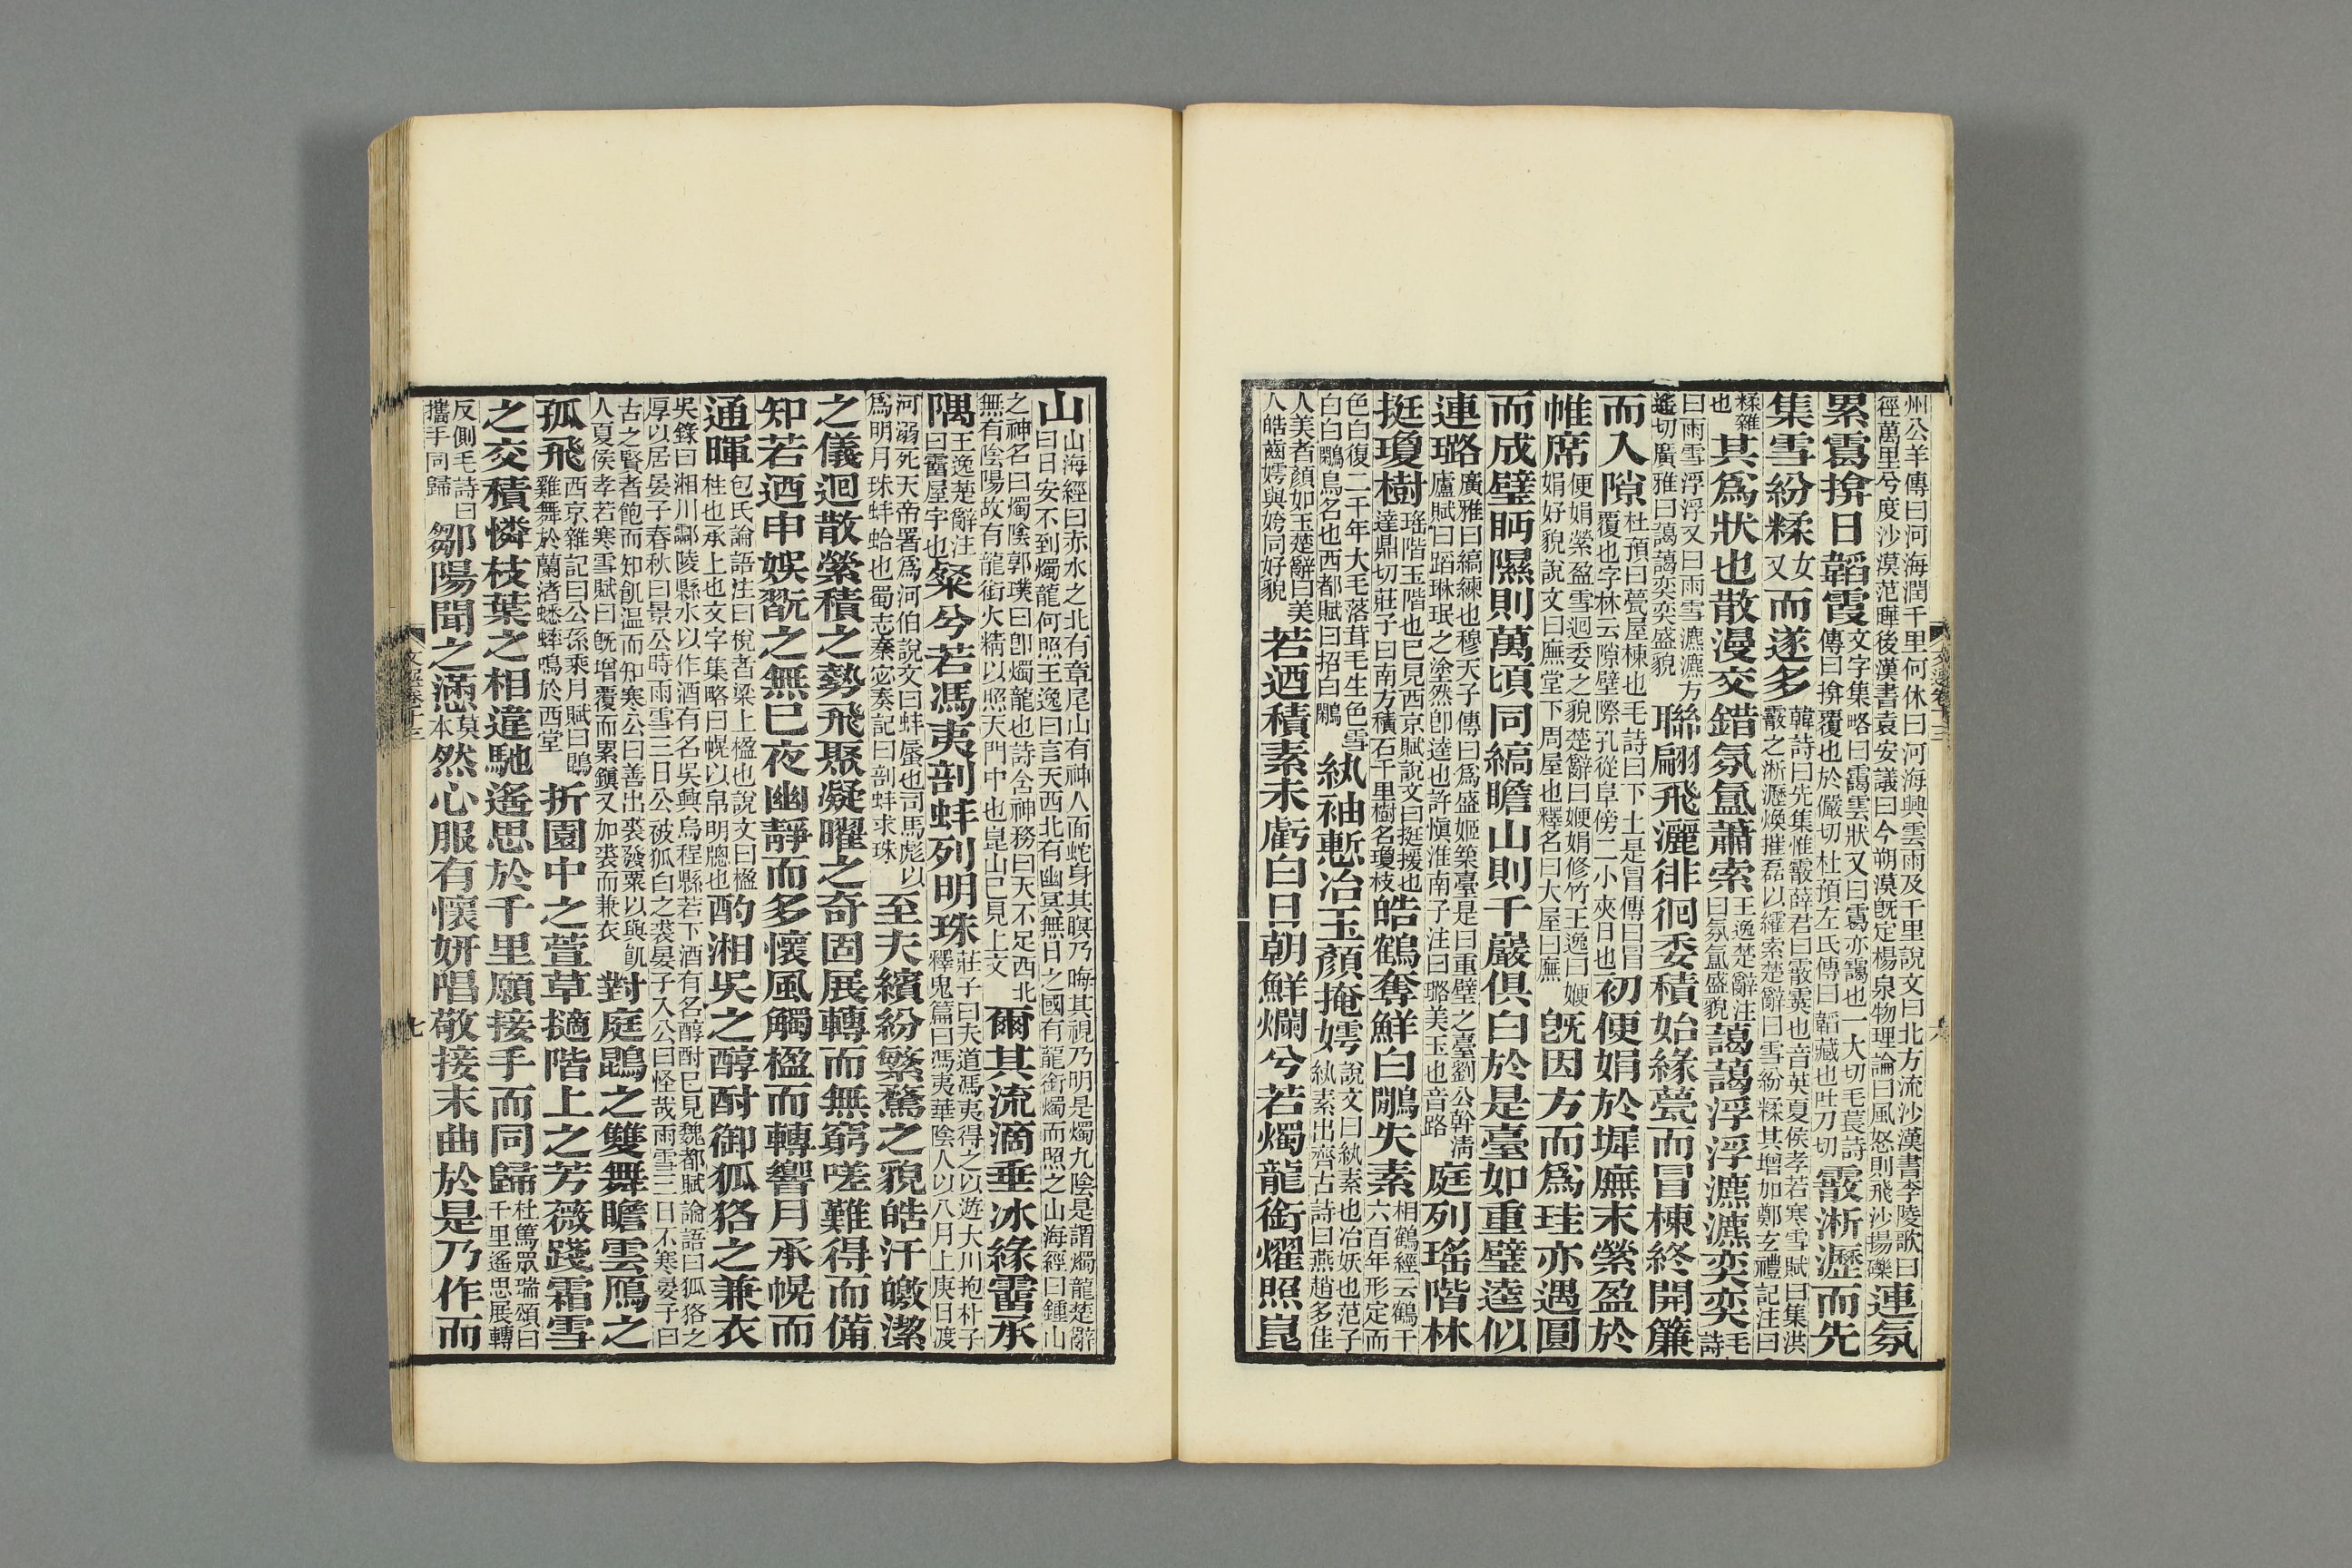 州公羊傳曰河海潤千里何休曰河海興雲雨及千里說文曰北方流沙漢書李陵歌曰徑萬里兮度沙漠范曄後漢書袁安議曰今朔漠旣定楊泉物理論曰風怒則飛沙揚礫連氛
累靄揜日韜霞文字集略曰靄雲狀又曰靄亦靄也一大切毛萇詩傳曰揜覆也於儼切杜預左氏傳曰韜藏也吐刀切霰淅瀝而先
集雪紛糅女又而遂多韓詩曰先集惟霰薛君曰霰霙也音英夏侯孝若寒雪賦曰集洪霰之淅瀝煥摧磊以纙索楚辭曰雪紛糅其增加鄭玄禮記注曰
糅雜也其爲狀也散漫交錯氛氳蕭索王逸楚辭注曰氛氳盛貌藹藹浮浮瀌瀌奕奕毛詩
曰雨雪浮浮又曰雨雪瀌瀌方遙切廣雅曰藹藹奕奕盛貌聯翩飛灑徘徊委積始緣甍而冒棟終開簾
而入隙杜預曰甍屋棟也毛詩曰下土是冒傳曰冒覆也字林云隙壁際孔從阜傍二小夾日也初便娟於墀廡末縈盈於
帷席便娟縈盈雪迴委之貌楚辭曰㛹娟修竹王逸曰㛹娟好貌說文曰廡堂下周屋也釋名曰大屋曰廡旣因方而爲珪亦遇圓
而成璧眄隰則萬頃同縞瞻山則千巖俱白於是臺如重璧逵似
連璐廣雅曰縞練也穆天子傳曰爲盛姬築臺是曰重璧之臺劉公幹淸廬賦曰蹈琳珉之塗然卽逵也許愼淮南子注曰璐美玉也音路庭列瑤階林
挺瓊樹瑤階玉階也已見西京賦說文曰挺援也達鼎切莊子曰南方積石千里樹名瓊枝皓鶴奪鮮白鷳失素相鶴經云鶴千六百年形定而
色白復二千年大毛落茸毛生色雪白白鷳鳥名也西都賦曰招白鷳紈袖慙冶玉顏掩嫮說文曰紈素也冶妖也范子紈素出齊古詩曰燕趙多佳
人美者顏如玉楚辭曰美人皓齒嫮與姱同好貌若迺積素未虧白日朝鮮爛兮若燭龍銜燿照崑
山山海經曰赤水之北有章尾山有神人面蛇身其瞑乃晦其視乃明是燭九陰是謂燭龍楚辭曰日安不到燭龍何照王逸曰言天西北有幽冥無日之國有龍銜燭而照之山海經曰鍾山
之神名曰燭陰郭璞曰卽燭龍也詩含神務曰天不足西北無有陰陽故有龍銜火精以照天門中也崑山已見上文爾其流滴垂冰緣霤承
隅王逸楚辭注曰霤屋宇也粲兮若馮夷剖蚌列明珠莊子曰夫道馮夷得之以遊大川抱朴子釋鬼篇曰馮夷華陰人以八月上庚日渡
河溺死天帝署爲河伯說文曰蚌蜃也司馬彪以爲明月珠蚌蛤也蜀志秦宓奏記曰剖蚌求珠至夫繽紛繁騖之貌皓汗皦潔
之儀迴散縈積之勢飛聚凝曜之奇固展轉而無窮嗟難得而備
知若迺申娛翫之無已夜幽靜而多懷風觸楹而轉響月承幌而
通暉包氏論語注曰梲者梁上楹也說文曰楹柱也承上也文字集略曰幌以帛明牕也酌湘吳之醇酎御狐狢之兼衣
吳錄曰湘川酃陵縣水以作酒有名吳興烏程縣若下酒有名醇酎已見魏都賦論語曰狐狢之厚以居晏子春秋曰景公時雨雪三日公被狐白之裘晏子入公曰怪哉雨雪三日不寒晏子曰
古之賢者飽而知飢温而知寒公曰善出裘發粟以與飢人夏侯孝若寒雪賦曰旣增覆而累鎭又加裘而兼衣對庭鵾之雙舞瞻雲鴈之
孤飛西京雜記曰公孫乘月賦曰鵾雞舞於蘭渚蟋蟀鳴於西堂折園中之萱草擿階上之芳薇踐霜雪
之交積憐枝葉之相違馳遙思於千里願接手而同歸杜篤眾瑞頌曰千里遙思展轉
反側毛詩曰攜手同歸鄒陽聞之懣莫本然心服有懷妍唱敬接末曲於是乃作而
七